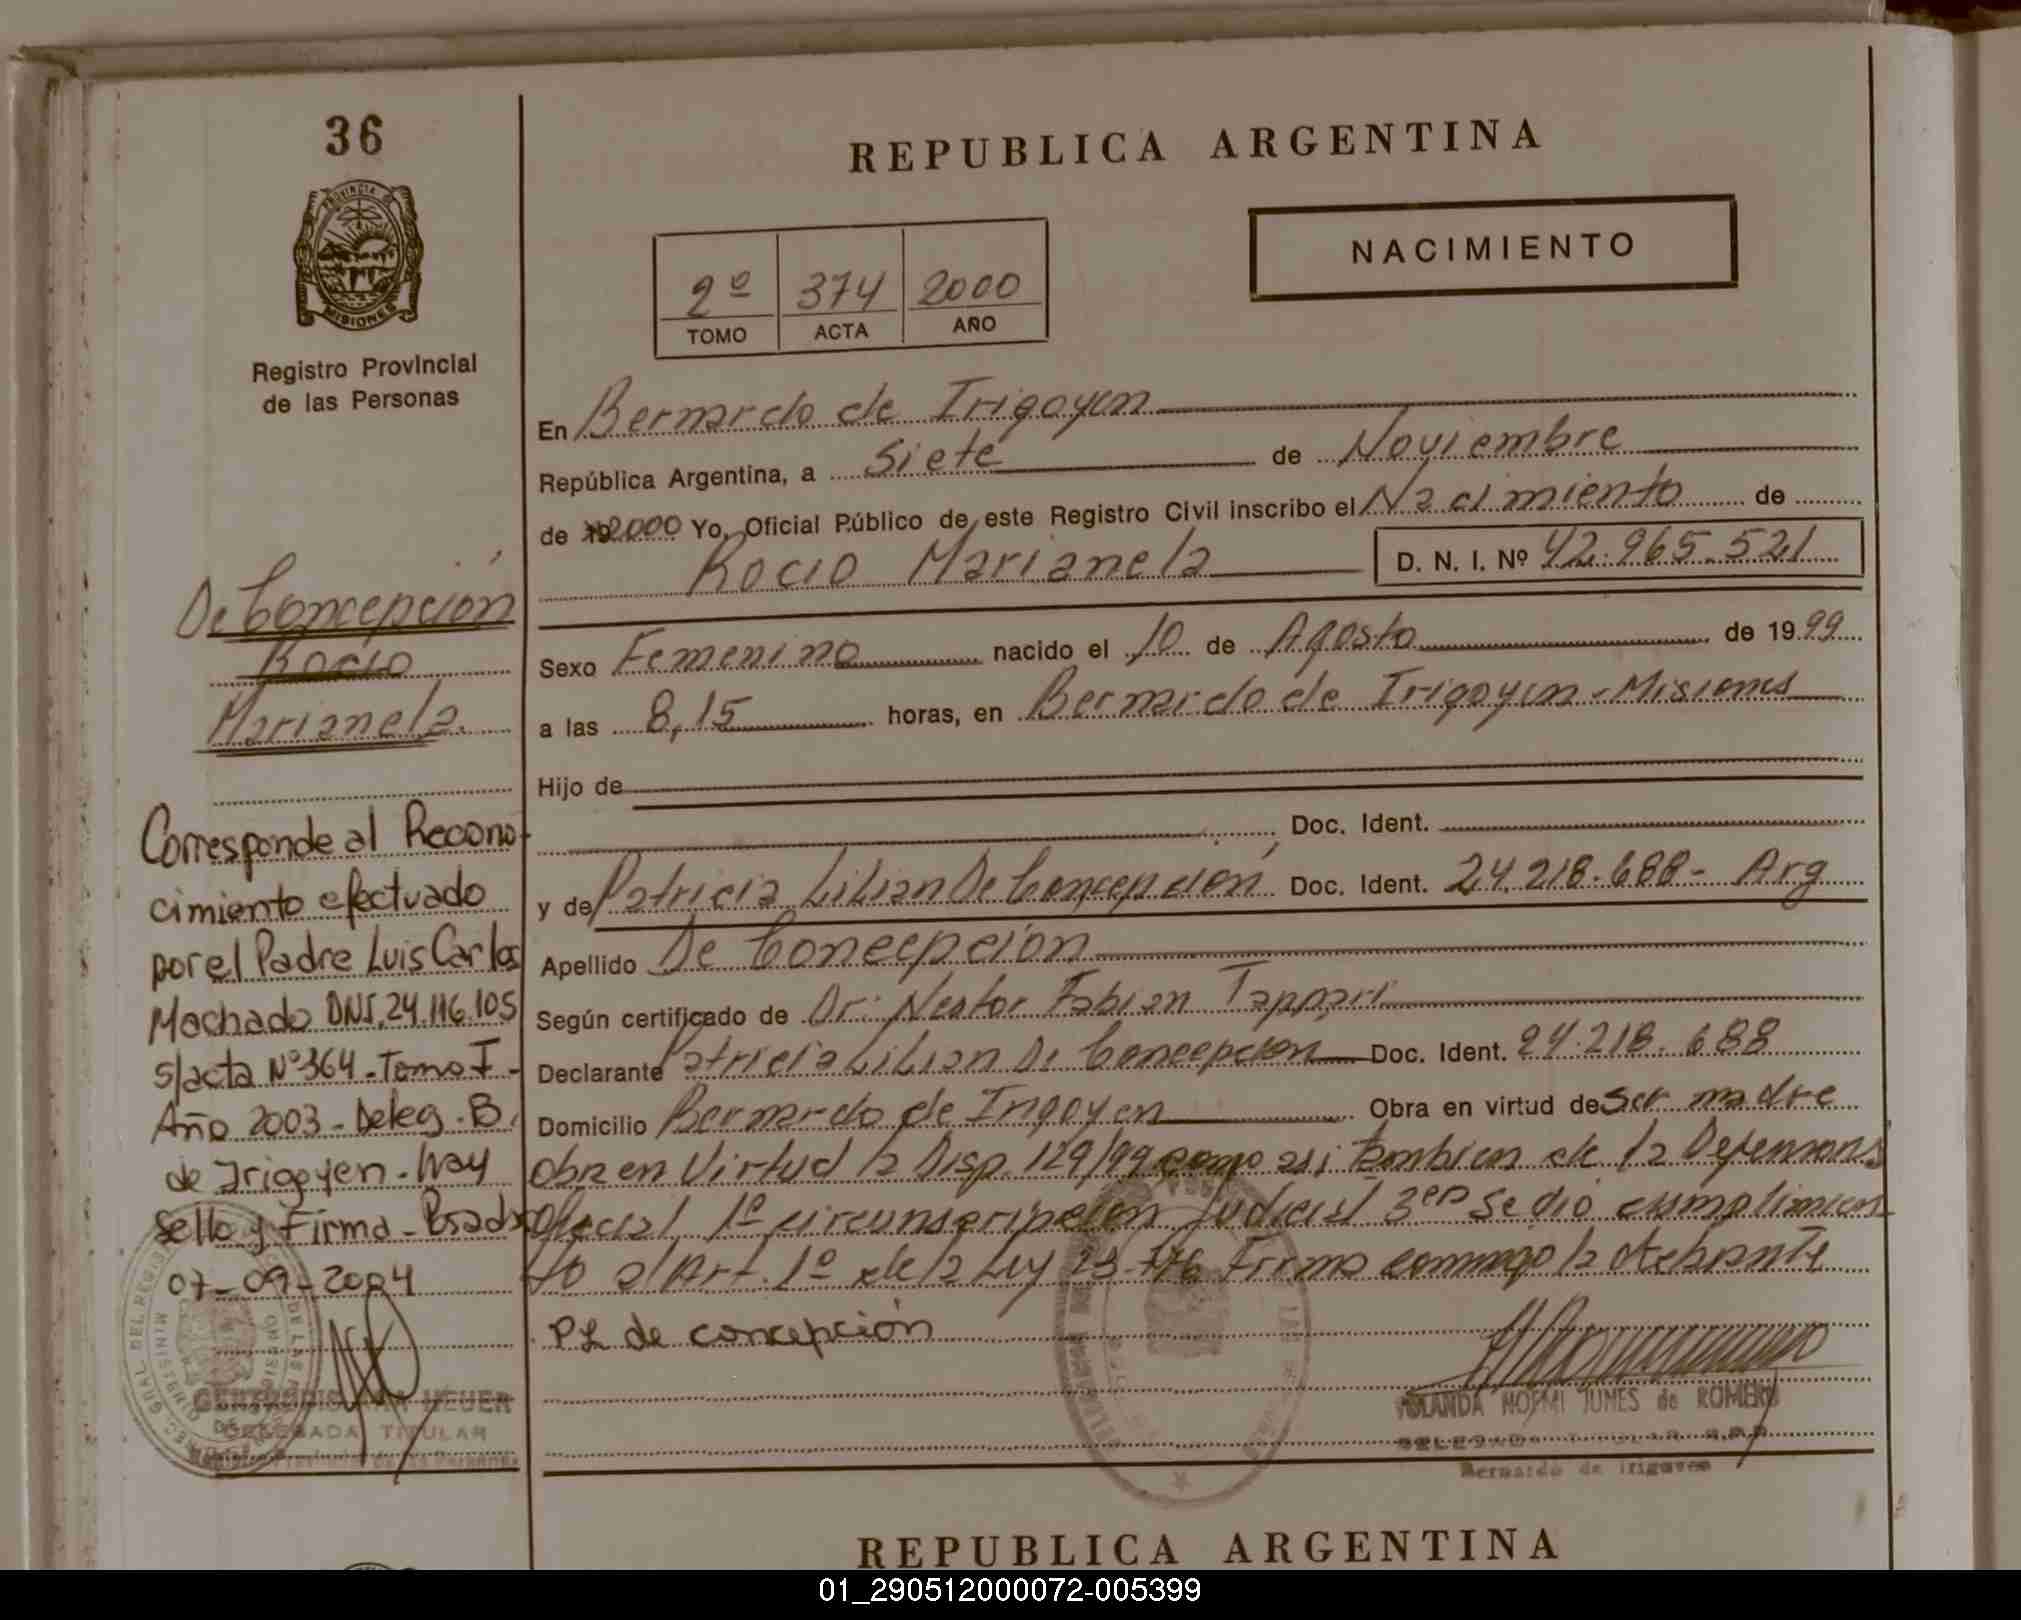 36
PROVINCIA DE
MISIONES
Registro Provincial
de las Personas
De Concepción
Rocio
Marianela.
Corresponde al Recono-
cimiento efectuado
por el Padre Luis Carlos
Machado DNI. 24.116.105
s/acta Nº 364 - Tomo I -
Año 2003 - Deleg. B.
de Irigoyen - hay
Sello y Firma - Posadas
07-09-2004
HEUER
DELEGADA TITULAR
REPUBLICA ARGENTINA
NACIMIENTO
2º 374 2000
TOMO ACTA AÑO
En Bernardo de Irigoyen
República Argentina, a Siete de Noviembre
de 2000 Yo, Oficial Público de este Registro Civil inscribo el Nacimiento de
Rocio Marianela D. N. I. Nº 42.965.521
Sexo Femenino nacido el 10 de Agosto de 1999
a las 8,15 horas, en Bernardo de Irigoyen - Misiones
Hijo de
Doc. Ident.
y de Patricia Lilian De Concepción Doc. Ident. 24.218.688 - Arg
Apellido De Concepción
Según certificado de Dr: Nestor Fabian Tappari
Declarante Patricia Lilian De Concepción Doc. Ident. 24.218.688
Domicilio Bernardo de Irigoyen Obra en virtud de ser madre
obra en Virtud la Disp. 129/99 como asi tambien de la Defensoria
Oficial 1º circunscripción Judicial 3era se dió cumplimien-
to al Art. 1º de la Ley 23.776 Firma conmigo la
PL de concepción
YOLANDA NOEMI JUNES de ROMERO
DELEGADA TITULAR R.P.P.
Bernardo de Irigoyen
REPUBLICA ARGENTINA
01_290512000072-005399